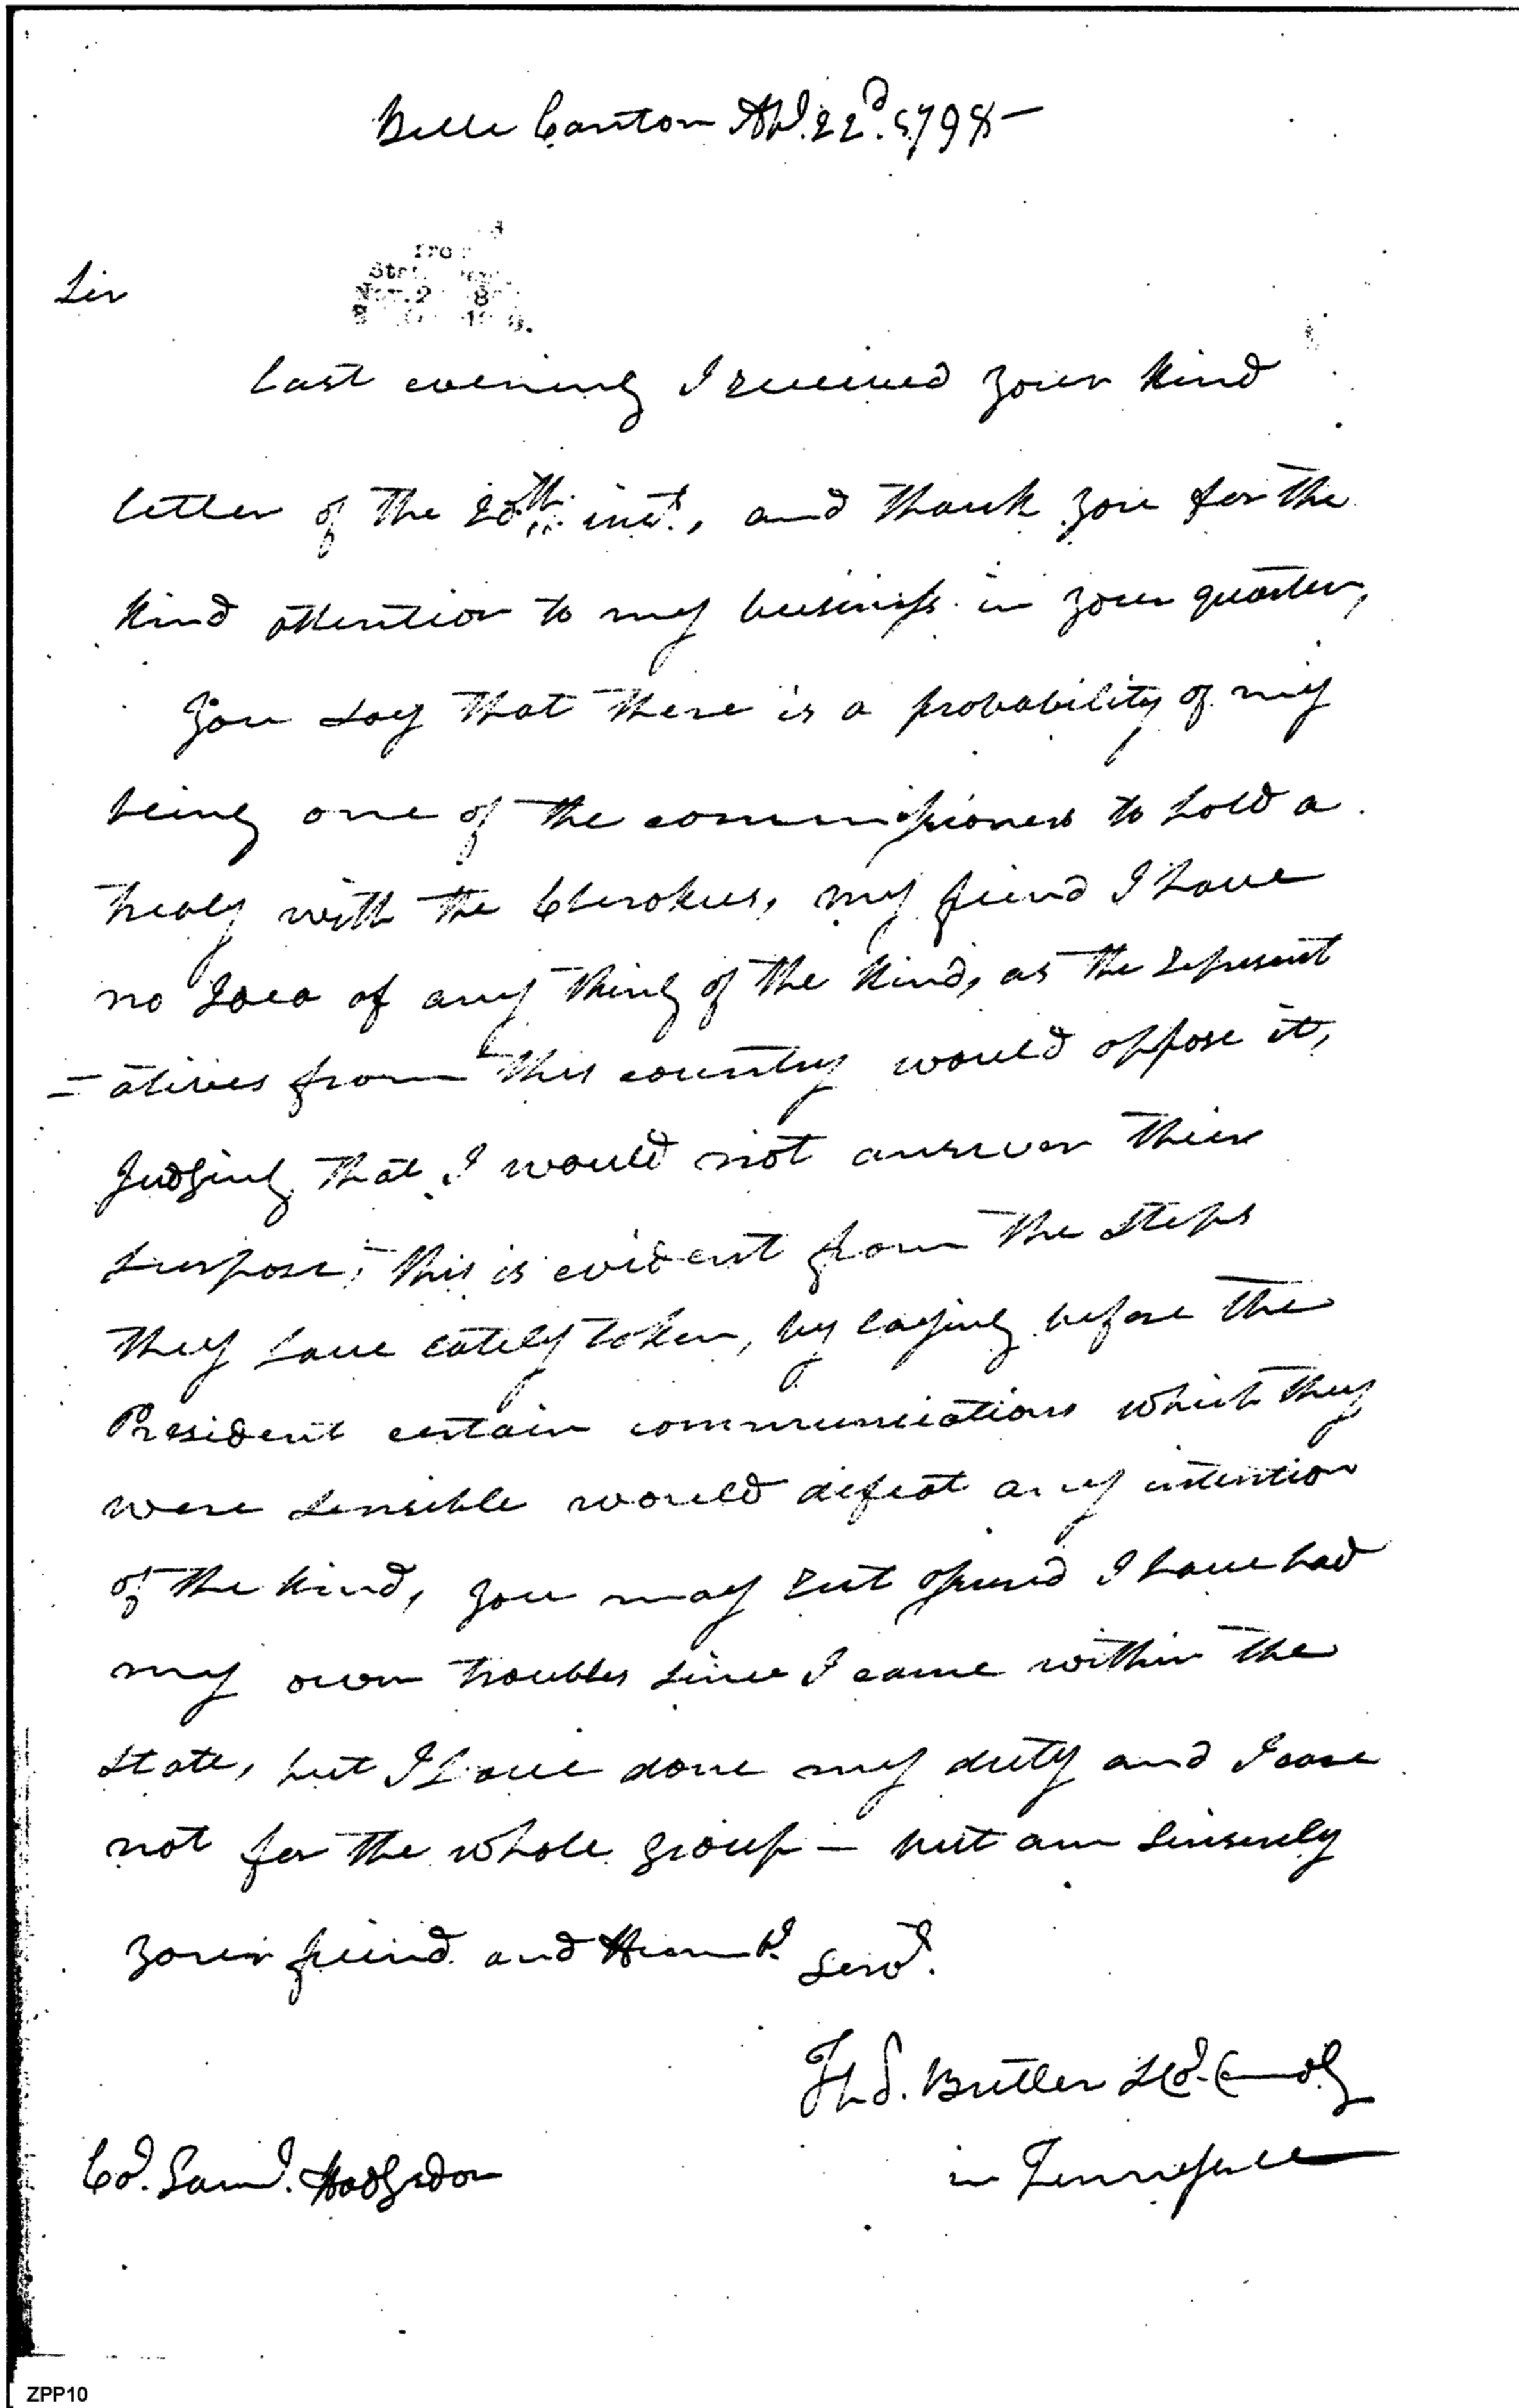 Belle Canton Apl. 22d. 1798—
Sir
Last evening I received your kind
letter of the 20th. inst., and thank you for the
kind attention to my business in your quarter,
You say that there is a probability of my
being one of the commissioners to hold a
treaty with the Cherokees, my friend I have
no Idea of any thing of the kind, as the represent
=atives from this country would oppose it,
Judging that I would not answer their
purpose; this is evident from the steps
they have lately taken, by laying before the
President certain communications which they
were sensible would defeat any intention
of the kind, you may rest assured I have had
my own troubles since I came within the
state, but I have done my duty and I care
not for the whole group — but am sinserely
your friend and Huml. Servt.
Ths. Butler Lt. Col. Comdg
in Tennessee
Col. Saml. Hodgsdon
ZPP10